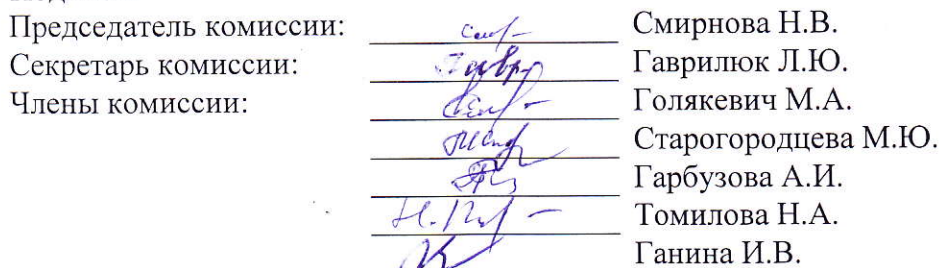 Председатель комиссии: Смирнова Н.В.
Секретарь комиссии: Гаврилюк Л.Ю.
Члены комиссии: Голякевич М.А.
Старогородцева М.Ю.
Гарбузова А.И.
Томилова Н.А.
Ганина И.В.